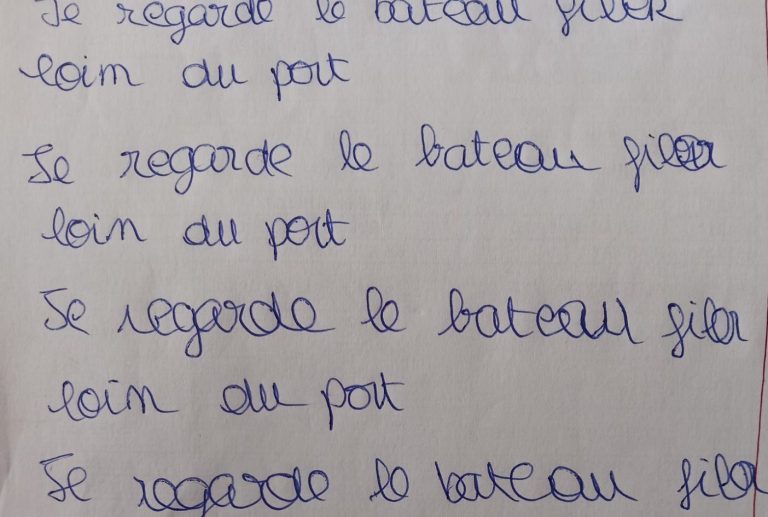 Je regarde le bateau filer
loin du port
Je regarde le bateau filer
loin du port
Je regarde le bateau filer
loin du port
Je regarde le bateau filer